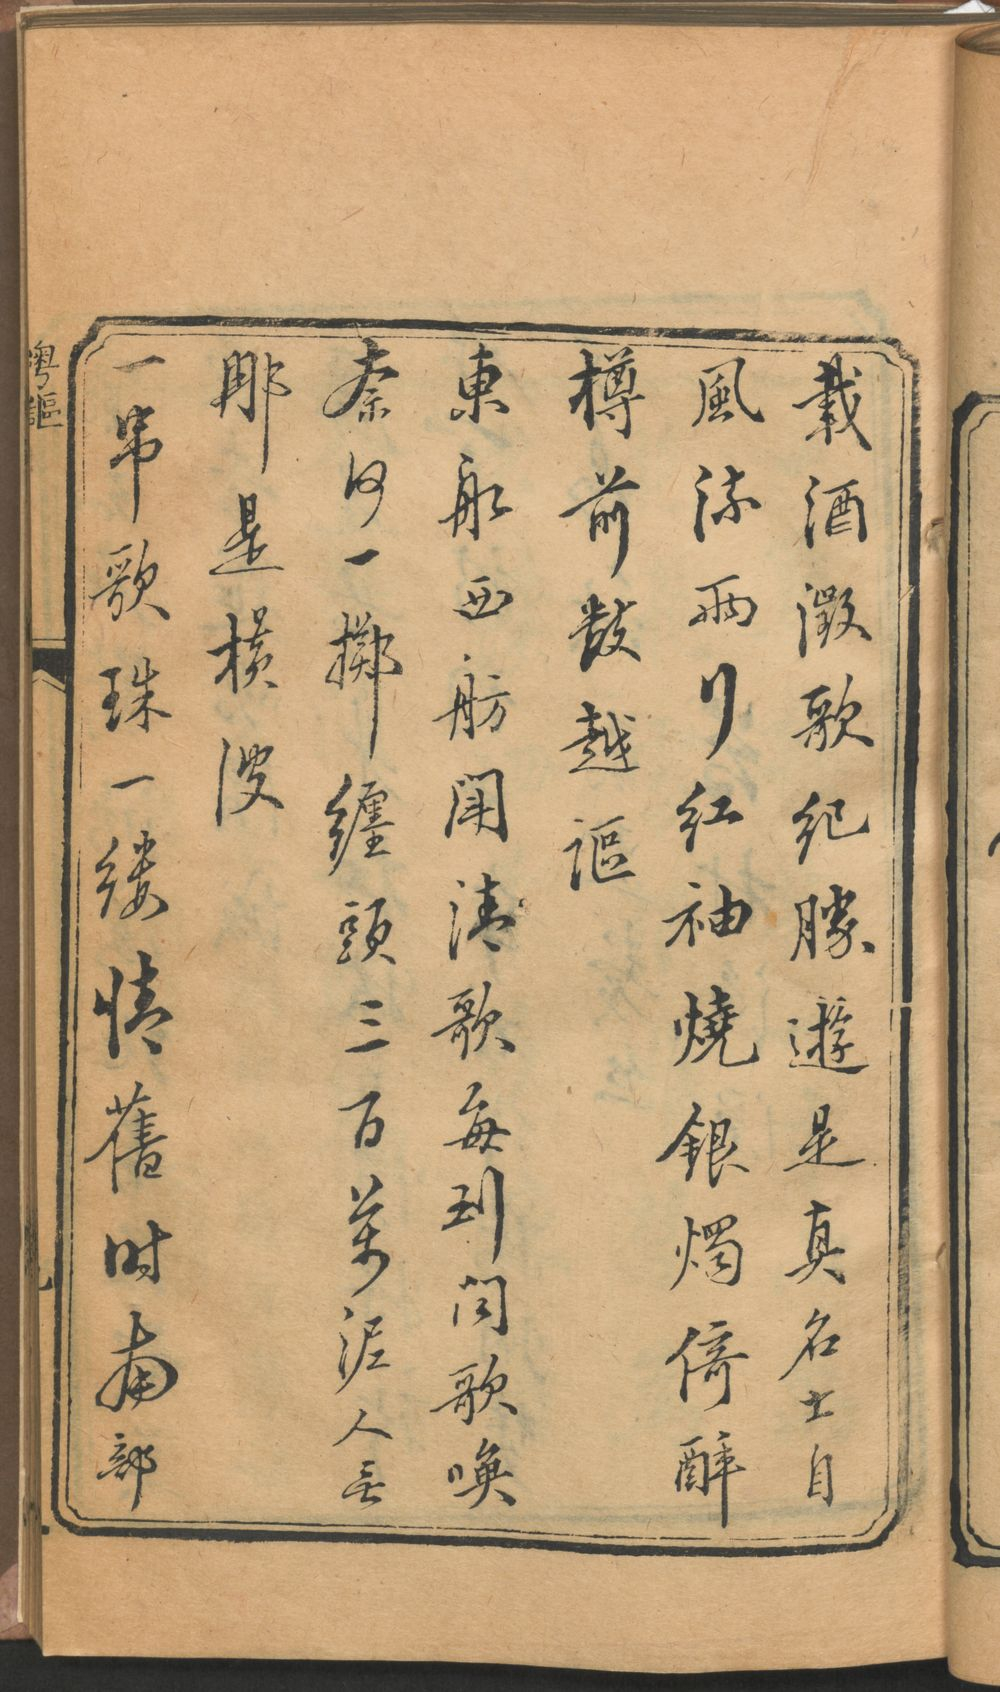 載酒徵歌紀勝遊是真名士自
風流兩行紅袖燒銀燭倚醉
樽前數越謳
東船西舫聞清歌每到聞歌喚
奈何一擲纏頭三百萬泥人無
那是橫波
一串歌珠一縷情舊時南部
粵謳